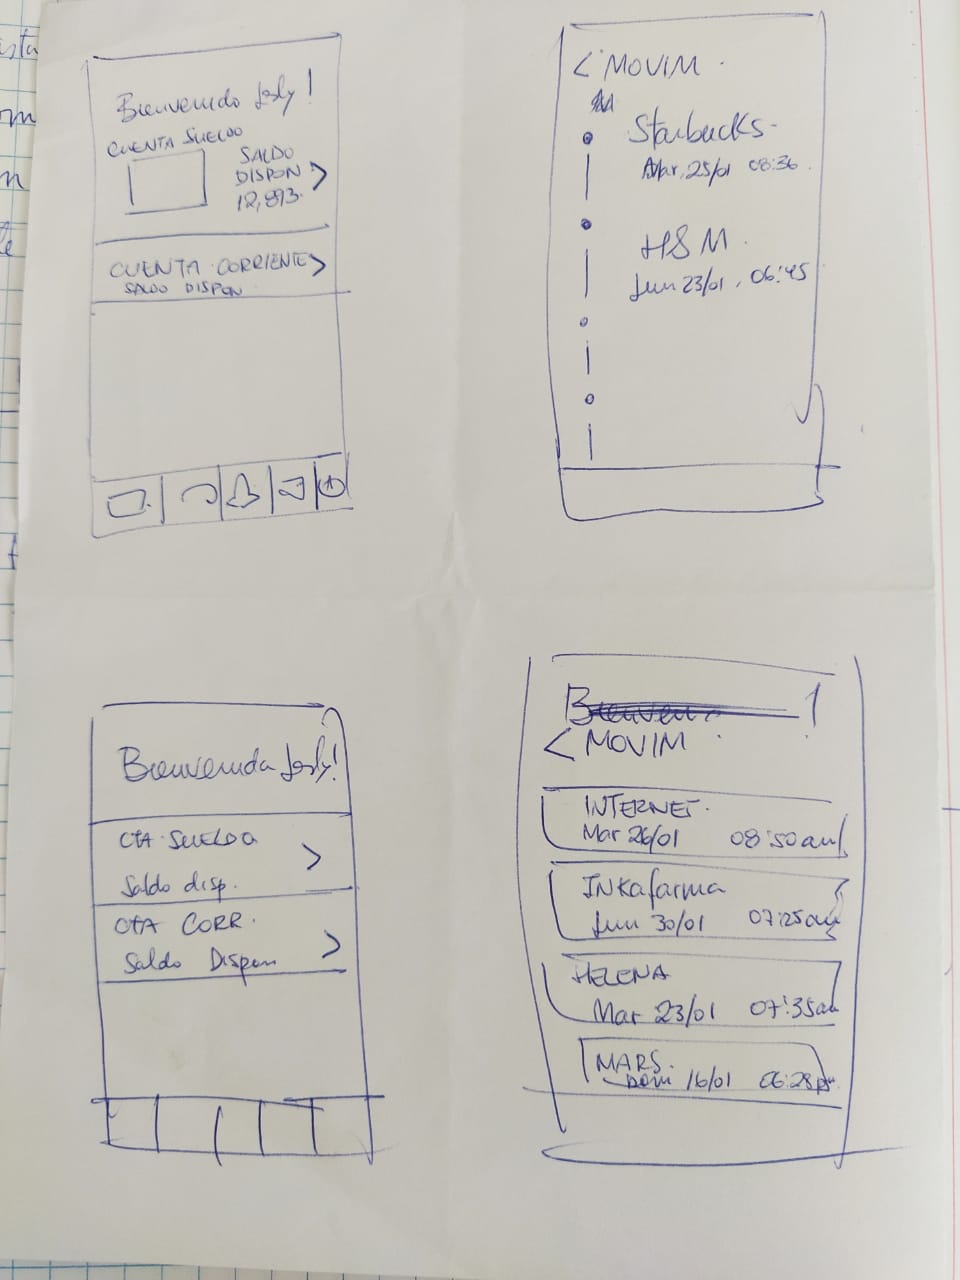 Bienvenido Lesly!
CUENTA SUELDO
SALDO
DISPON >
12,893.
CUENTA CORRIENTE >
SALDO DISPON
< MOVIM.
Starbucks-
Mar, 25/01 08:36.
H&M.
Lun 23/01, 06:45
Bienvenida Lesly!
CTA SUELDO
Saldo disp. >
CTA CORR.
Saldo Dispon >
< MOVIM
INTERNET.
Mar 26/01 08:50am
INKafarma
Lun 30/01 07:25am
HELENA
Mar 23/01 07:35am
MARS.
Dom 16/01 06:28pm